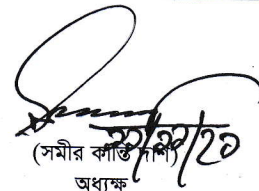 (সমীর কান্তি দাশ)
অধ্যক্ষ